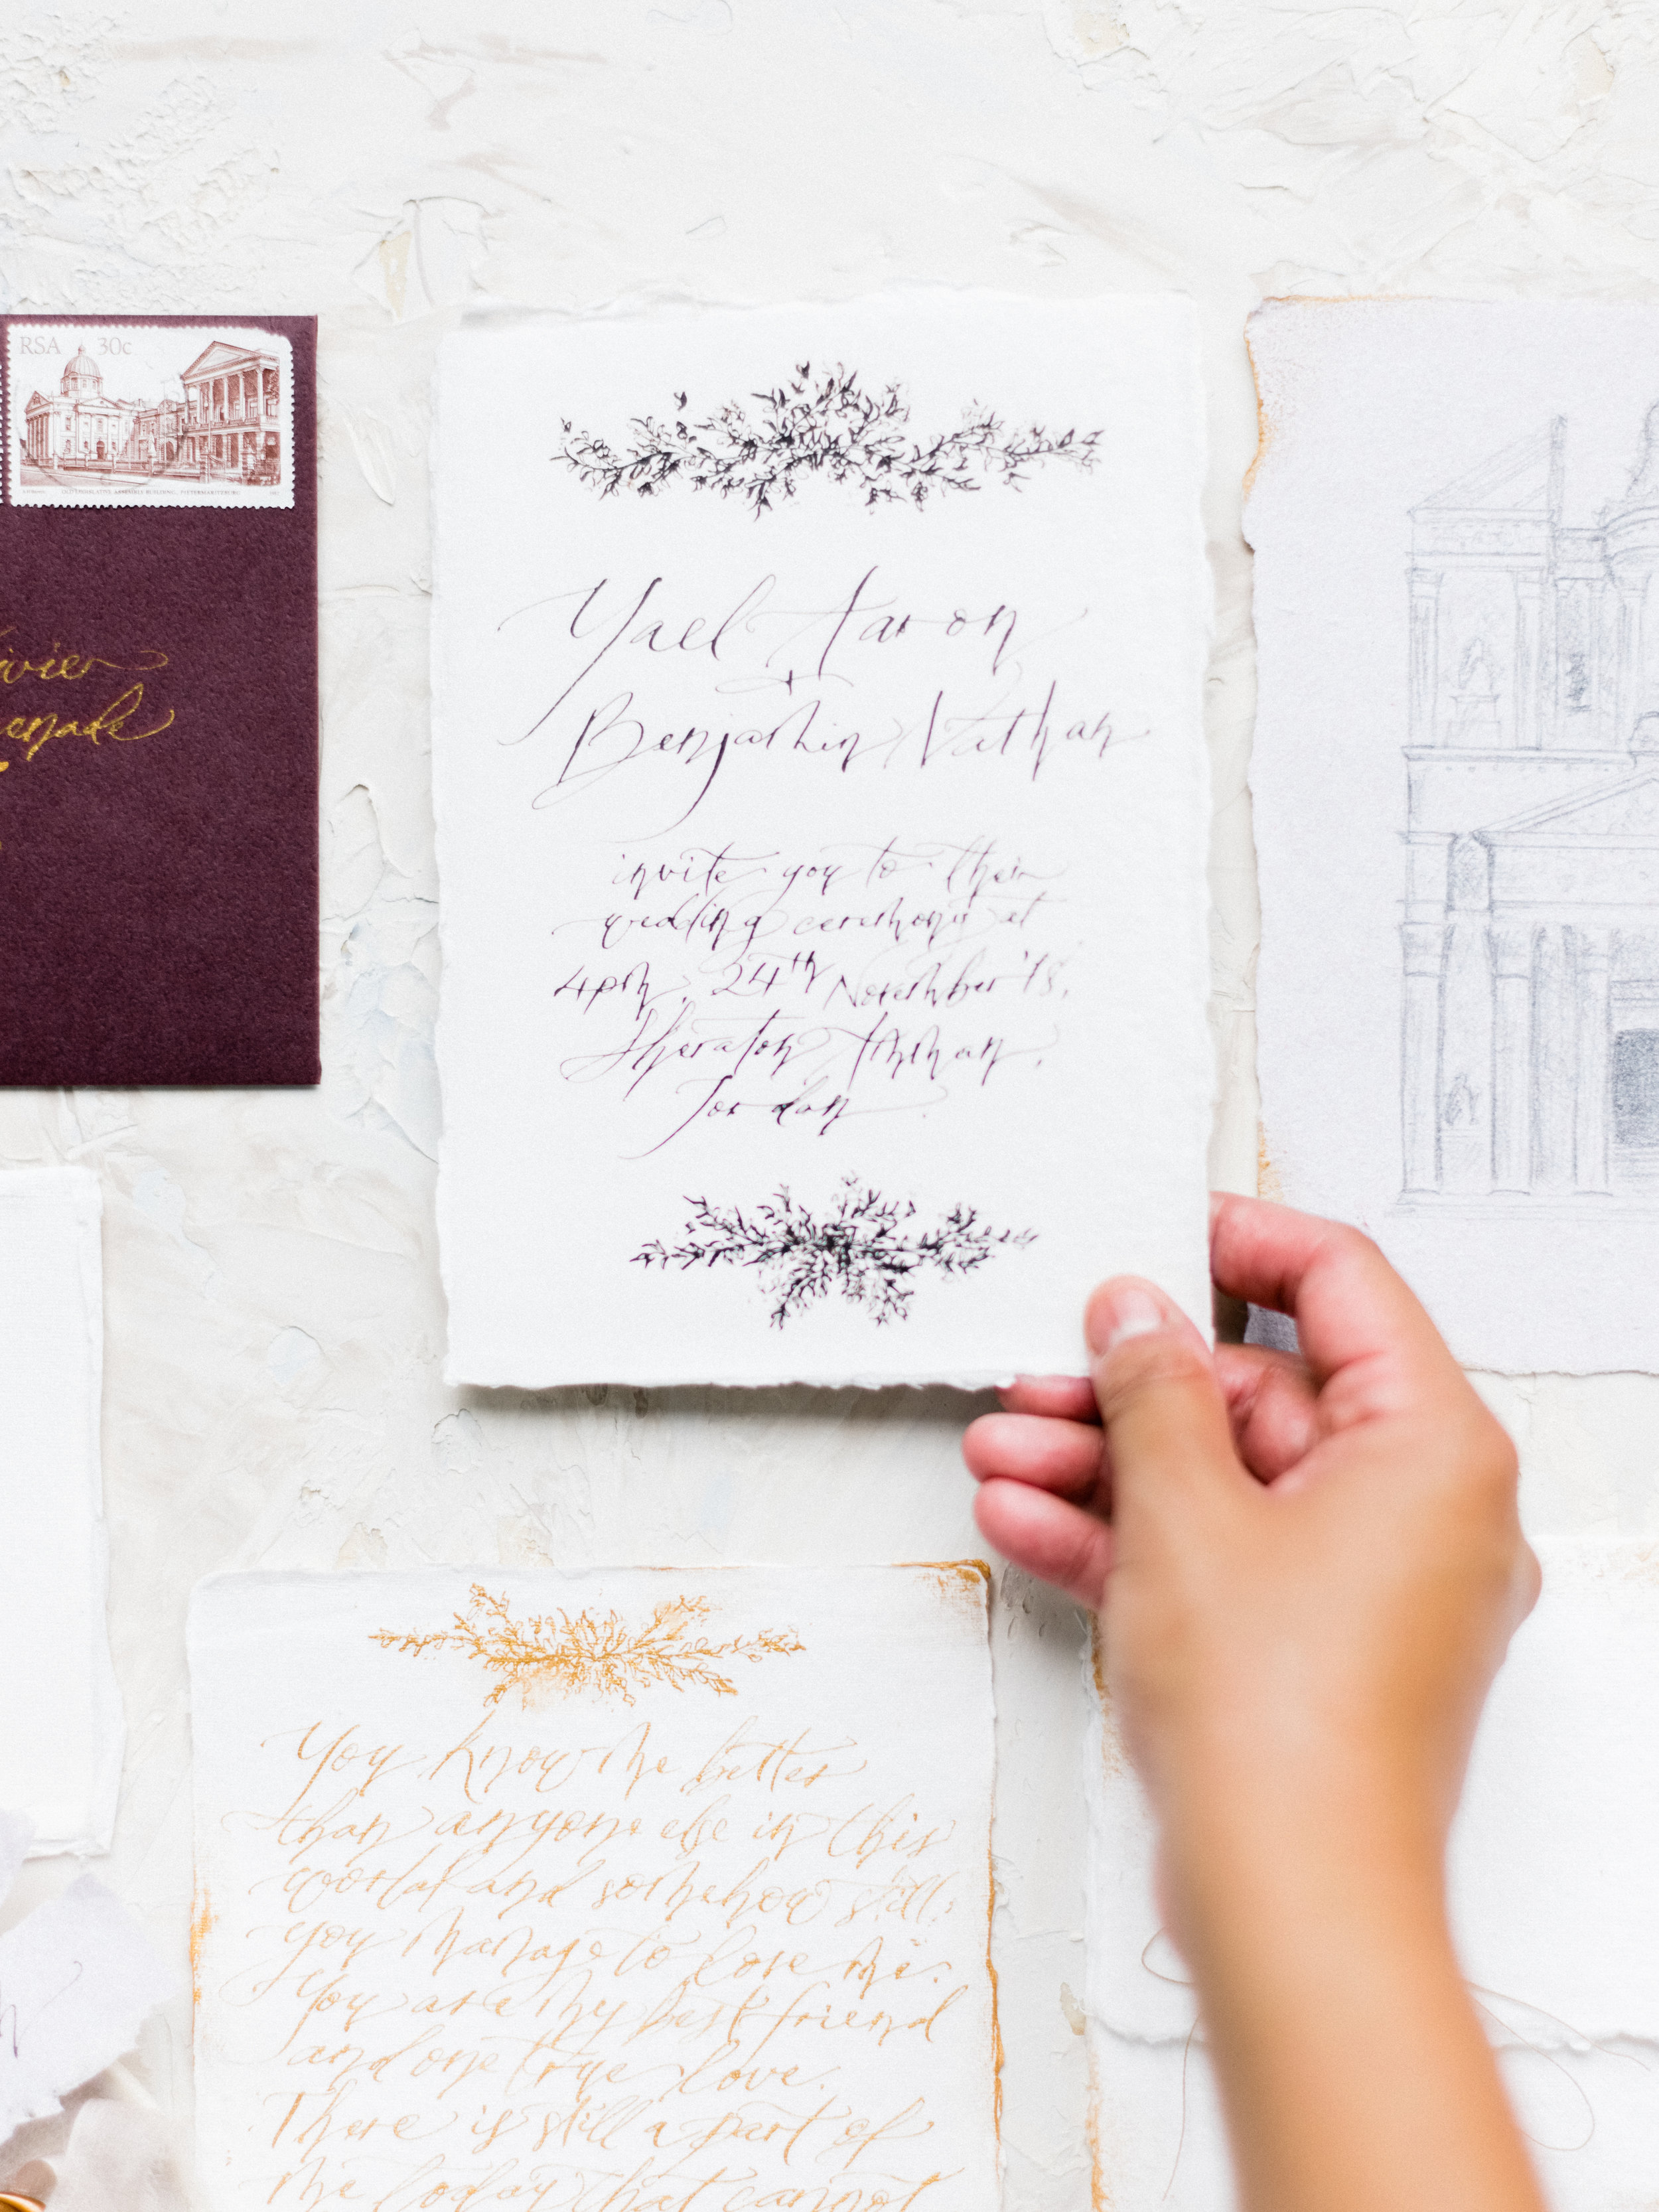 RSA 30c
OLD LEGISLATIVE ASSEMBLY BUILDING, PIETERMARITZBURG
Yael Aaron
+
Benjamin Nathan
invite you to their
wedding ceremony at
4pm, 24th November '18,
Sheraton Amman,
Jordan
You know me better
than anyone else in this
world and somehow still
you manage to love me.
You are my best friend
and one true love.
There is still a part of
me today that cannot